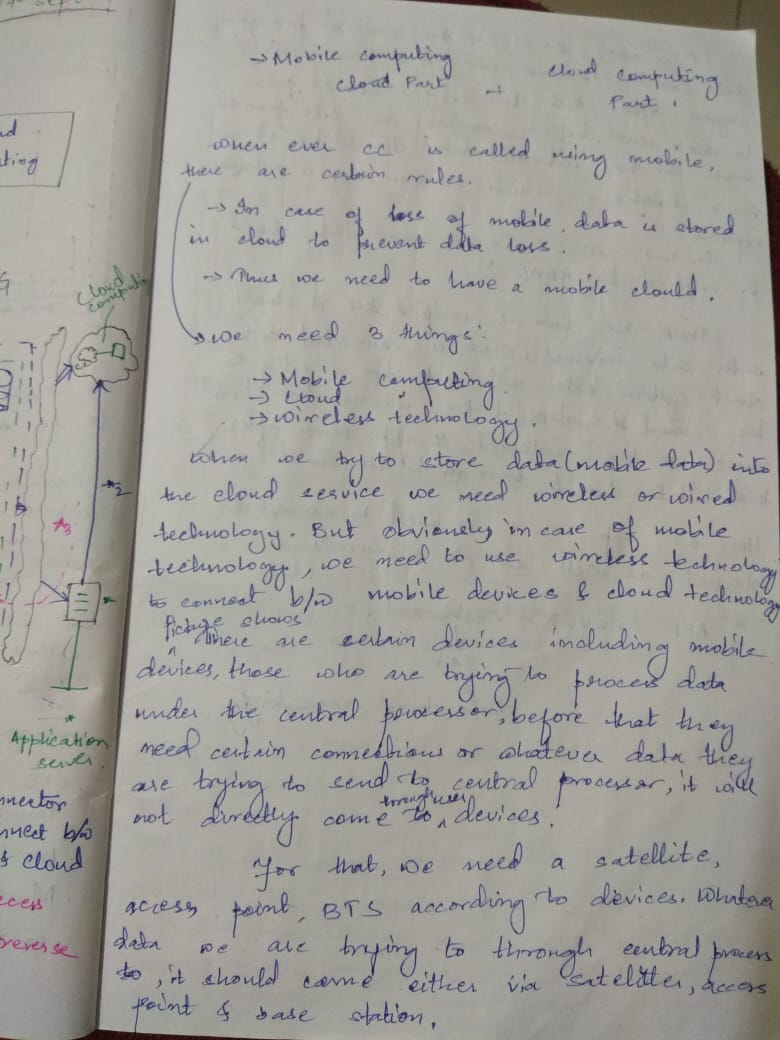 → Mobile computing
Cloud Part + Cloud computing
Part.
when ever cc is called using mobile,
there are certain rules.
→ In case of loss of mobile, data is stored
in cloud to prevent data loss.
→ Thus we need to have a mobile clould.
we need 3 things:
→ Mobile computing
→ Cloud "
→ wireless technology.
When we try to store data (mobile data) into
the cloud service we need wireless or wired
technology. But obviously in case of mobile
technology, we need to use wireless technology
to connect b/w mobile devices & cloud technology
Picture shows
There are certain devices including mobile
devices, those who are trying to process data
under the central processor, before that they
need certain connections or whatever data they
are trying to send to central processor, it will
not directly come to through user devices.
For that, we need a satellite,
access point, BTS according to devices. Whatever
data we are trying to through central process
to, it should come either via satelitter, access
point & base station.
ting
Cloud
computi
*2
*3
*
Application
server.
nnector
nnect b/w
& cloud
ccess
reverse